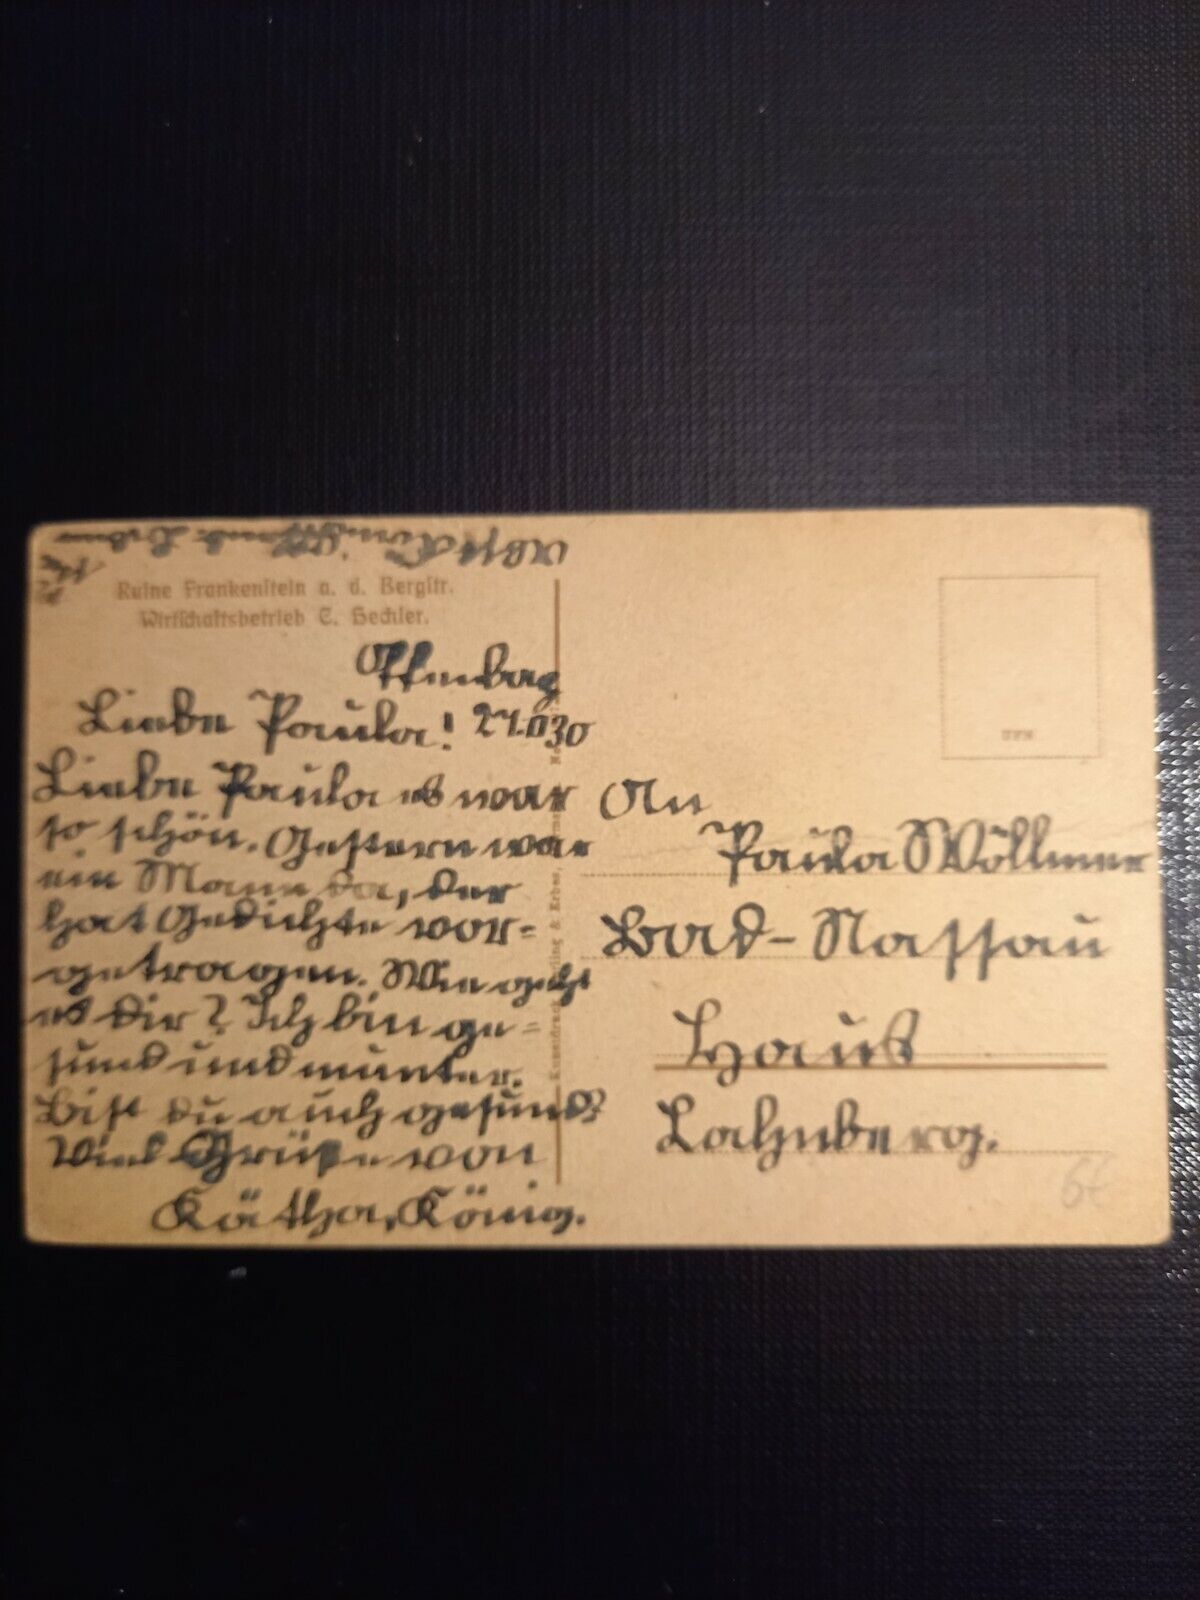 Ruine Frankenstein a. d. Bergstr.
Wirtschaftsbetrieb C. Hechler.
Offenbag
Liebe Paula!
Liebe Paula es war
so schön. Gestern war
ein Mann da, der
hat Gedichte vor-
getragen. Wie geht
es dir? Ich bin ge-
sund und munter.
Bist du auch gesund?
Viel Grüße von
Kätha, König.
An
Paula Wöllmer
Bad-Nassau
Haus
Lahnberg.
6€